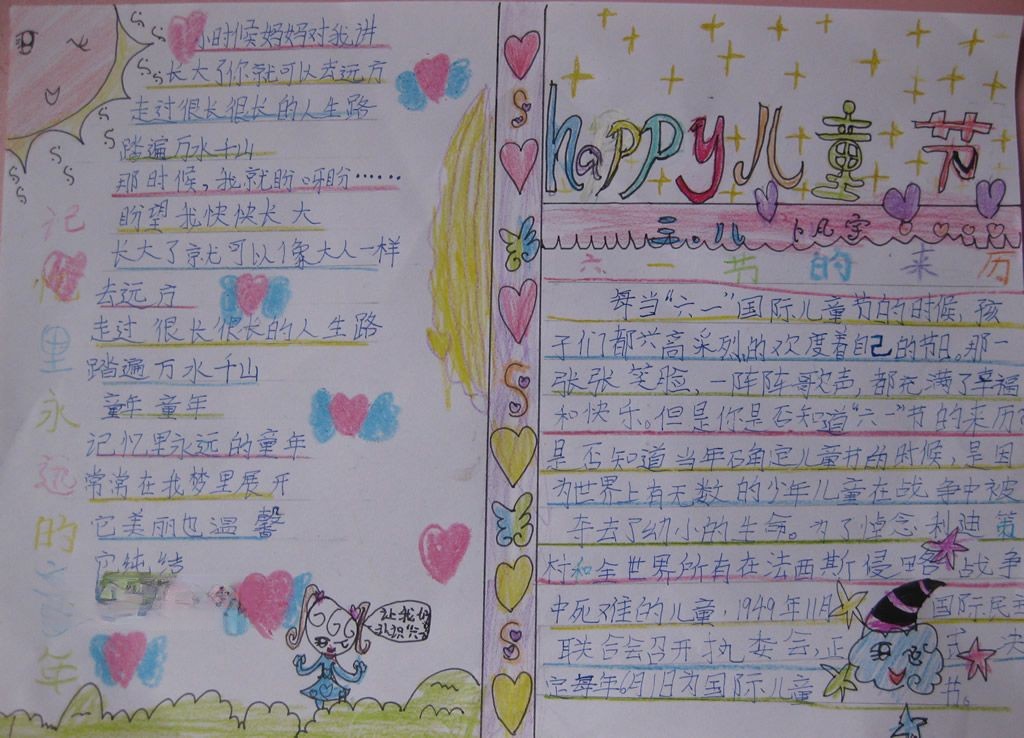 小时候妈妈对我讲
长大了你就可以去远方
走过很长很长的人生路
踏遍万水千山
那时候，我就盼呀盼……
盼望我快快长大
长大了就可以像大人一样
去远方
走过很长很长的人生路
踏遍万水千山
童年童年
记忆里永远的童年
常常在我梦里展开
它美丽也温馨
它纯洁
记忆里永远的童年
让我们
happy儿童节
六一节的来历
每当“六一”国际儿童节的时候，孩
子们都兴高采烈的欢度着自己的节日。那一
张张笑脸，一阵阵歌声，都充满了幸福
和快乐。但是你是否知道“六一”节的来历？
是否知道当年确定儿童节的时候，是因
为世界上有无数的少年儿童在战争中被
夺去了幼小的生命。为了悼念利迪策
村和全世界所有在法西斯侵略战争
中死难的儿童，1949年11月国际民主
联合会召开执委会，正式决
定每年6月1日为国际儿童节。